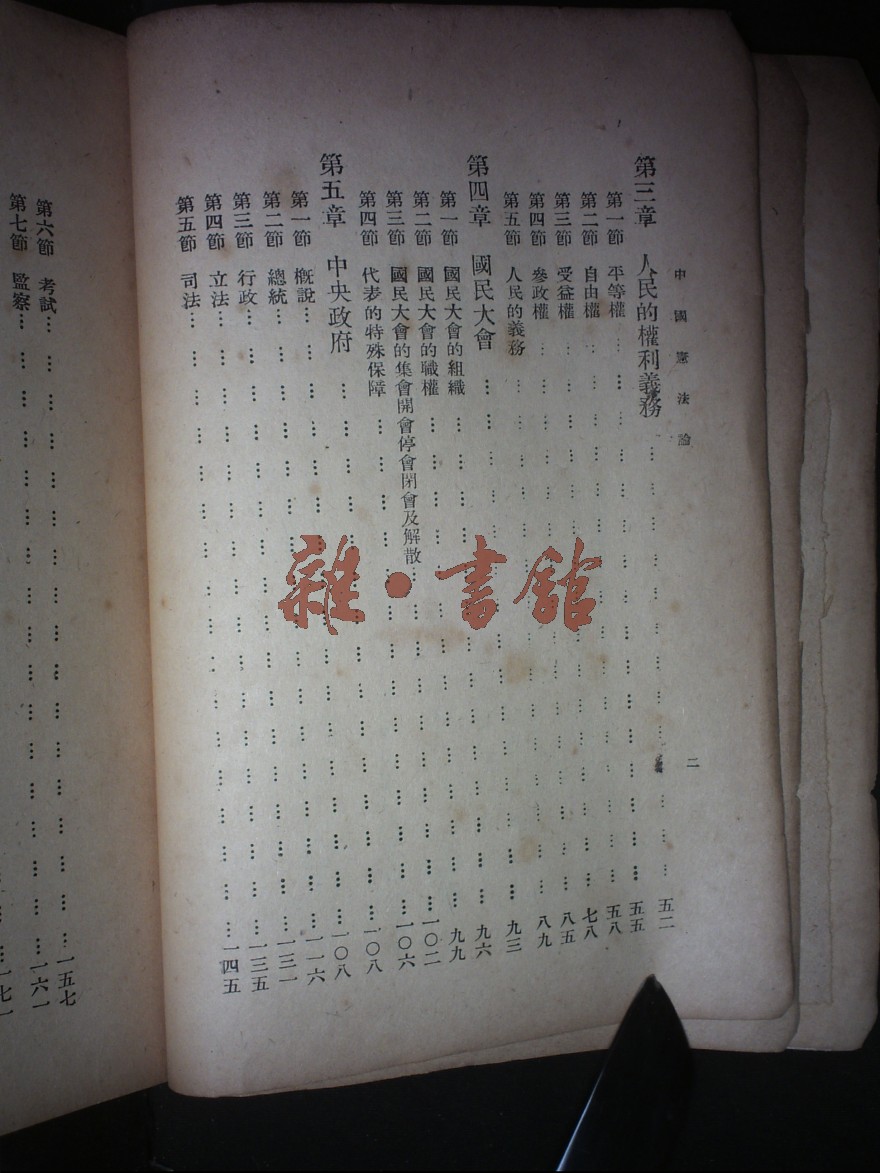 中國憲法論
二
第三章 人民的權利義務……五二
第一節 平等權……五五
第二節 自由權……五八
第三節 受益權……七八
第四節 參政權……八五
第五節 人民的義務……八九
第四章 國民大會……九三
第一節 國民大會的組織……九六
第二節 國民大會的職權……九九
第三節 國民大會的集會開會停會閉會及解散……一〇二
第四節 代表的特殊保障……一〇六
第五章 中央政府……一〇八
第一節 概說……一〇八
第二節 總統……一一六
第三節 行政……一三一
第四節 立法……一三五
第五節 司法……一四五
第六節 考試……一五七
第七節 監察……一六一
雜·書館